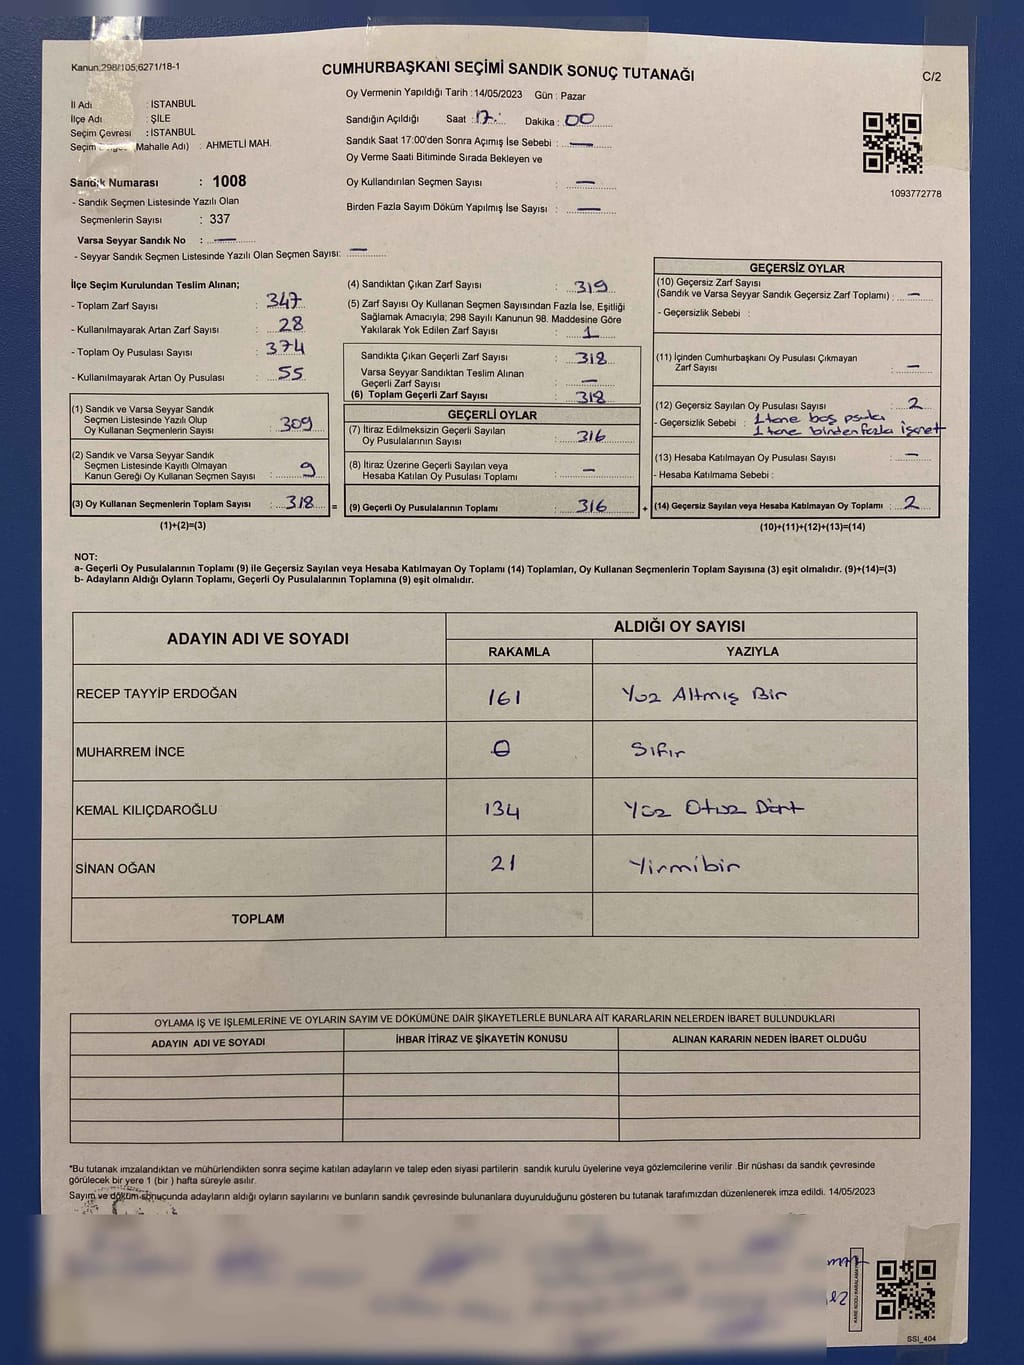 Kanun:298/105,6271/18-1
CUMHURBAŞKANI SEÇİMİ SANDIK SONUÇ TUTANAĞI
C/2
Oy Vermenin Yapıldığı Tarih : 14/05/2023 Gün : Pazar
İl Adı : İSTANBUL
İlçe Adı : ŞİLE
Seçim Çevresi : İSTANBUL
Seçim (Mahalle Adı) : AHMETLİ MAH.
Sandığın Açıldığı Saat : 17: Dakika : 00
Sandık Saat 17:00'den Sonra Açımış İse Sebebi : —
Oy Verme Saati Bitiminde Sırada Bekleyen ve
Oy Kullandırılan Seçmen Sayısı : —
Birden Fazla Sayım Döküm Yapılmış İse Sayısı : —
1093772778
Sandık Numarası : 1008
- Sandık Seçmen Listesinde Yazılı Olan
Seçmenlerin Sayısı : 337
Varsa Seyyar Sandık No : —
- Seyyar Sandık Seçmen Listesinde Yazılı Olan Seçmen Sayısı: —
İlçe Seçim Kurulundan Teslim Alınan;
- Toplam Zarf Sayısı : 347
- Kullanılmayarak Artan Zarf Sayısı : 28
- Toplam Oy Pusulası Sayısı : 374
- Kullanılmayarak Artan Oy Pusulası : 55
(1) Sandık ve Varsa Seyyar Sandık
Seçmen Listesinde Yazılı Olup
Oy Kullanan Seçmenlerin Sayısı : 309
(2) Sandık ve Varsa Seyyar Sandık
Seçmen Listesinde Kayıtlı Olmayan
Kanun Gereği Oy Kullanan Seçmen Sayısı : 9
(3) Oy Kullanan Seçmenlerin Toplam Sayısı : 318 =
(1)+(2)=(3)
(4) Sandıktan Çıkan Zarf Sayısı : 319
(5) Zarf Sayısı Oy Kullanan Seçmen Sayısından Fazla İse, Eşitliği
Sağlamak Amacıyla; 298 Sayılı Kanunun 98. Maddesine Göre
Yakılarak Yok Edilen Zarf Sayısı : 1
Sandıkta Çıkan Geçerli Zarf Sayısı : 318
Varsa Seyyar Sandıktan Teslim Alınan
Geçerli Zarf Sayısı : —
(6) Toplam Geçerli Zarf Sayısı : 318
GEÇERLİ OYLAR
(7) İtiraz Edilmeksizin Geçerli Sayılan
Oy Pusulalarının Sayısı : 316
(8) İtiraz Üzerine Geçerli Sayılan veya
Hesaba Katılan Oy Pusulası Toplamı : —
(9) Geçerli Oy Pusulalarının Toplamı : 316 +
GEÇERSİZ OYLAR
(10) Geçersiz Zarf Sayısı
(Sandık ve Varsa Seyyar Sandık Geçersiz Zarf Toplamı) : —
- Geçersizlik Sebebi :
(11) İçinden Cumhurbaşkanı Oy Pusulası Çıkmayan
Zarf Sayısı : —
(12) Geçersiz Sayılan Oy Pusulası Sayısı : 2
- Geçersizlik Sebebi : 1 tane boş
1 tane birden fazla işaret
(13) Hesaba Katılmayan Oy Pusulası Sayısı : —
- Hesaba Katılmama Sebebi :
(14) Geçersiz Sayılan veya Hesaba Katılmayan Oy Toplamı : 2
(10)+(11)+(12)+(13)=(14)
NOT:
a- Geçerli Oy Pusulalarının Toplamı (9) ile Geçersiz Sayılan veya Hesaba Katılmayan Oy Toplamı (14) Toplamları, Oy Kullanan Seçmenlerin Toplam Sayısına (3) eşit olmalıdır. (9)+(14)=(3)
b- Adayların Aldığı Oyların Toplamı, Geçerli Oy Pusulalarının Toplamına (9) eşit olmalıdır.
ADAYIN ADI VE SOYADI
ALDIĞI OY SAYISI
RAKAMLA YAZIYLA
RECEP TAYYİP ERDOĞAN 161 Yüz Altmış Bir
MUHARREM İNCE 0 Sıfır
KEMAL KILIÇDAROĞLU 134 Yüz Otuz Dört
SİNAN OĞAN 21 Yirmibir
TOPLAM
OYLAMA İŞ VE İŞLEMLERİNE VE OYLARIN SAYIM VE DÖKÜMÜNE DAİR ŞİKAYETLERLE BUNLARA AİT KARARLARIN NELERDEN İBARET BULUNDUKLARI
ADAYIN ADI VE SOYADI İHBAR İTİRAZ VE ŞİKAYETİN KONUSU ALINAN KARARIN NEDEN İBARET OLDUĞU
*Bu tutanak imzalandıktan ve mühürlendikten sonra seçime katılan adayların ve talep eden siyasi partilerin sandık kurulu üyelerine veya gözlemcilerine verilir .Bir nüshası da sandık çevresinde
görülecek bir yere 1 (bir ) hafta süreyle asılır.
Sayım ve döküm sonucunda adayların aldığı oyların sayılarını ve bunların sandık çevresinde bulunanlara duyurulduğunu gösteren bu tutanak tarafımızdan düzenlenerek imza edildi. 14/05/2023
SSI_404